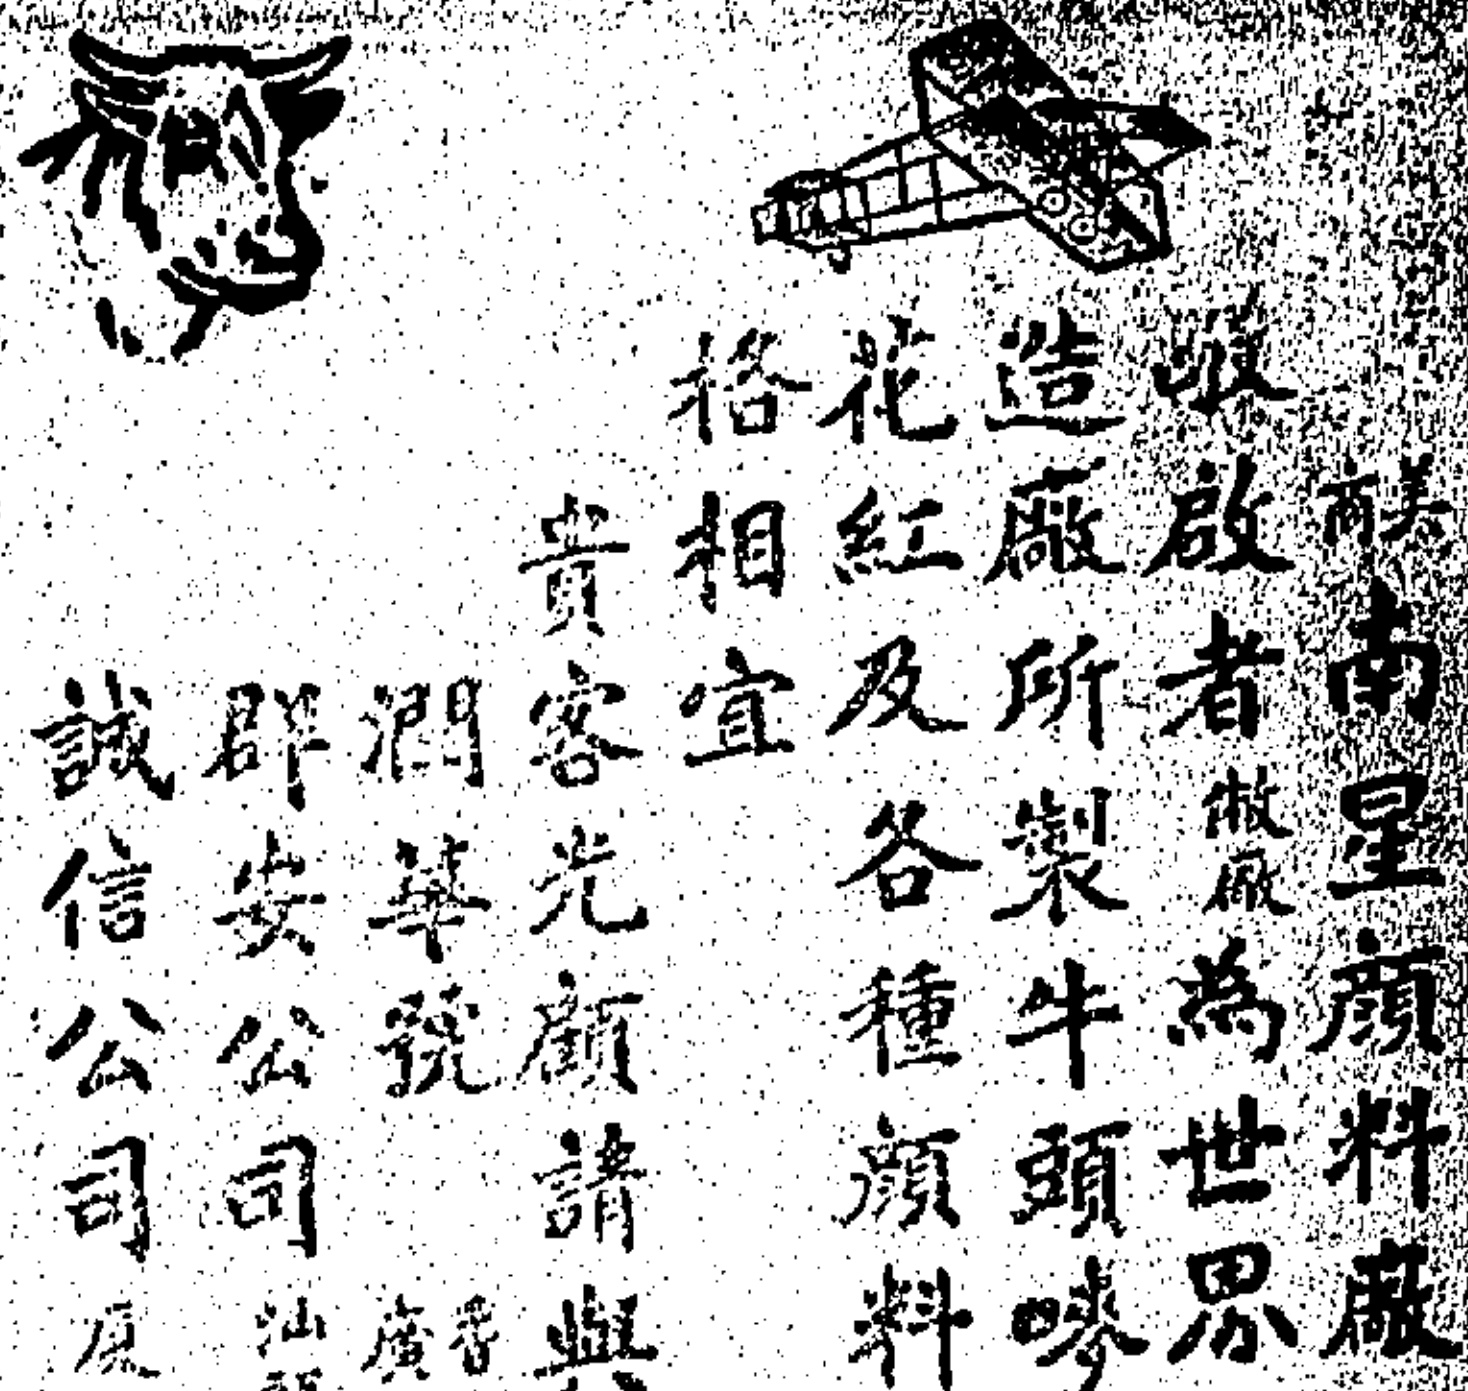 美商南星顔料廠
敬啟者敝廠為世界
造廠所製牛頭嘜
花紅及各種顔料
格相宜
貴客光顧請與
潤華號香廣
郡安公司汕
誠信公司厦